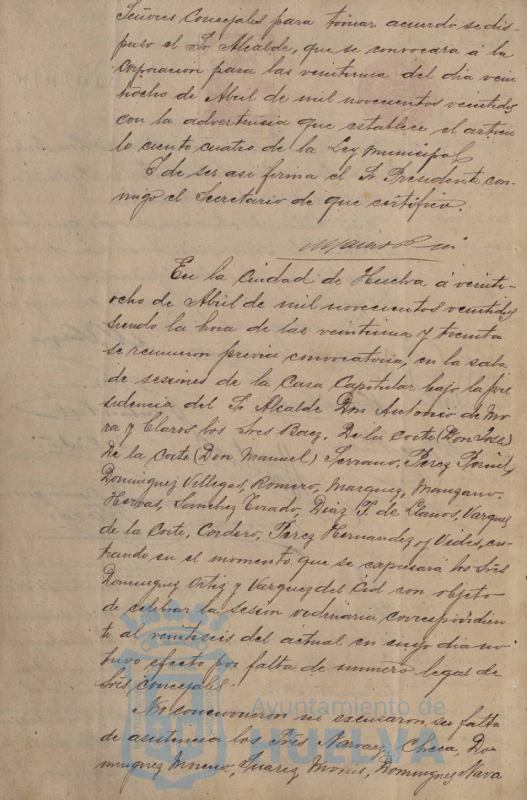 Señores Concejales para tomar acuerdo se dis-
puso el Sr Alcalde, que se convocara á la
Corporacion para las veintiuna del dia vein
tiocho de Abril de mil novecientos veintidos
con la advertencia que establece el articu
lo ciento cuatro de la Ley Municipal
Y de ser asi firma el Sr Presidente con-
migo el Secretario de que certifico.
En la Ciudad de Huelva á veinti-
ocho de Abril de mil novecientos veintidos
siendo la hora de las veintiuna y treinta
se reunieron previa convocatoria, en la sala
de sesiones de la Casa Capitular bajo la pre
sidencia del Sr Alcalde Don Antonio de Mo
ra y Claros los Sres Baez, De la Corte (Don José)
De la Corte (Don Manuel) Serrano, Perez
Dominguez Villegas, Romero, Marquez, Manzano,
Hervas, Sanchez Tirado, Diaz F. de Llanos, Vazquez
de la Corte, Cordero, Perez Hernandez y Vides, en-
trando en el momento que se expresará los Sres
Dominguez Ortiz y Vazquez del Cid con objeto
de celebrar la sesion ordinaria correspondien
te al veintiseis del actual en cuyo dia no
tuvo efecto por falta de numero legal de
Sres Concejales.
No concurrieron ni excusaron su falta
de asistencia los Sres Narvaez, Checa, Do-
minguez Moreno, Suarez, Dominguez Nava
Ayuntamiento de
HUELVA